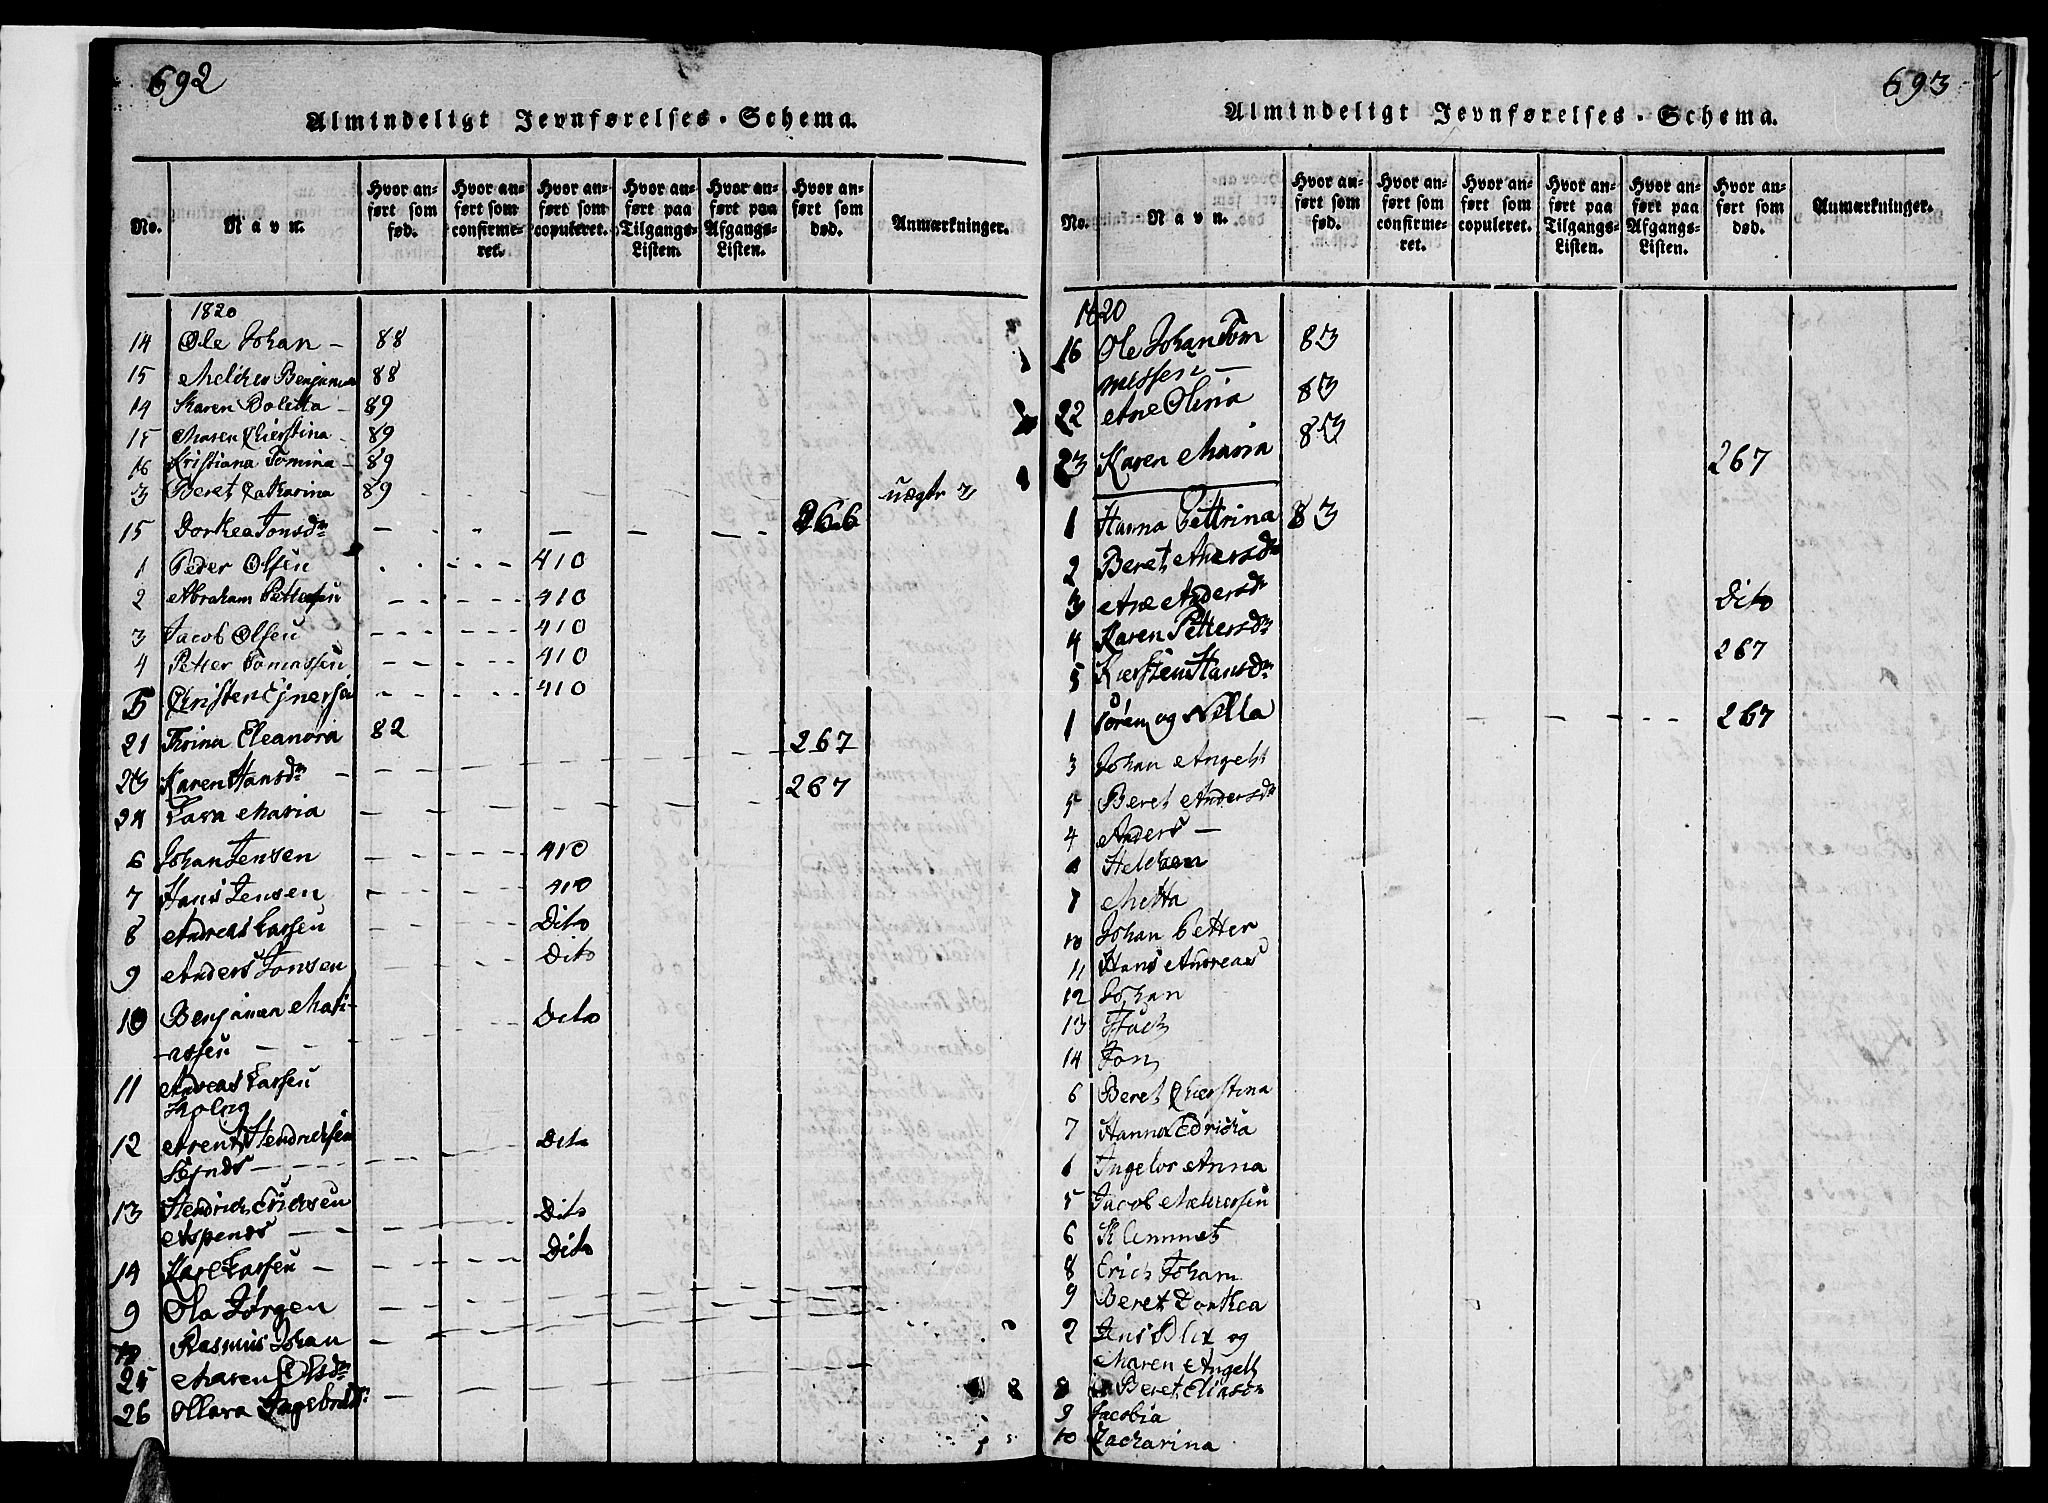 692
Almindeligt Jevnførelses-Schema.
No.
Navn.
Hvor an-
ført som
fød.
Hvor an-
ført som
confirme-
ret.
Hvor an-
ført som
copuleret.
Hvor an-
ført paa
Tilgangs-
Listen.
Hvor an-
ført paa
Afgangs-
Listen.
Hvor an-
ført som
død.
Anmærkninger.
1820
14 Ole Johan - 88
15 Melcher Benjamin 88
14 Karen Boletta - 89
15 Maren Chierstina - 89
16 Kristiana Tomina - 89
3 Beret Catharina 89 uægte
15 Dorthea Jonsdr 266
1 Peder Olsen 410
2 Abraham Pettersen 410
3 Jacob Olsen 410
4 Petter Tomassen 410
5 Christen Ejnersen 410
21 Trina Eleanora 82 267
Karen Hansdr 267
24 Lara Maria
6 Johan Jensen 410
7 Hans Jensen 410
8 Andreas Larsen Dito
9 Anders Jonsen Dito
10 Benjamen Mati- Dito
-assen
11 Andreas Larsen
12 Arent Hendrichsen Dito
13 Hendrich Erichsen Dito
Aspenes
14 Karl Larsen - Dito
9 Ola Jørgen
10 Rasmus Johan
25 Maren Olsdr
26 Ollava Ingebrdr
693
Almindeligt Jevnførelses-Schema.
No.
Navn.
Hvor an-
ført som
fød.
Hvor an-
ført som
confirme-
ret.
Hvor an-
ført som
copuleret.
Hvor an-
ført paa
Tilgangs-
Listen.
Hvor an-
ført paa
Afgangs-
Listen.
Hvor an-
ført som
død.
Anmærkninger.
1820
16 Ole Johan Tom 83
messen -
22 Ane Olina 83
23 Karen Maria 83 267
1 Hanna Pettrina 83
2 Beret Andersdr
3 Ane Andersdr Dito
4 Karen Pettersdr 267
5 Kiersten Hansdr
1 Søren og Nilla 267
3 Johan Angell
5 Beret Andersdr
4 Anders -
Helchen
Metta
10 Johan Petter
11 Hans Andreas
12 Johan
13
14 Jon
6 Beret Chierstina
7 Hanna Edricka
6 Ingebor Anna
5 Jacob Melchersen
6 Klemmet
8 Erich Johan
9 Beret Dorthea
2 Jens Blix og
Maren Angell
8 Beret Eliasen
9 Jacobia
10 Zacharina